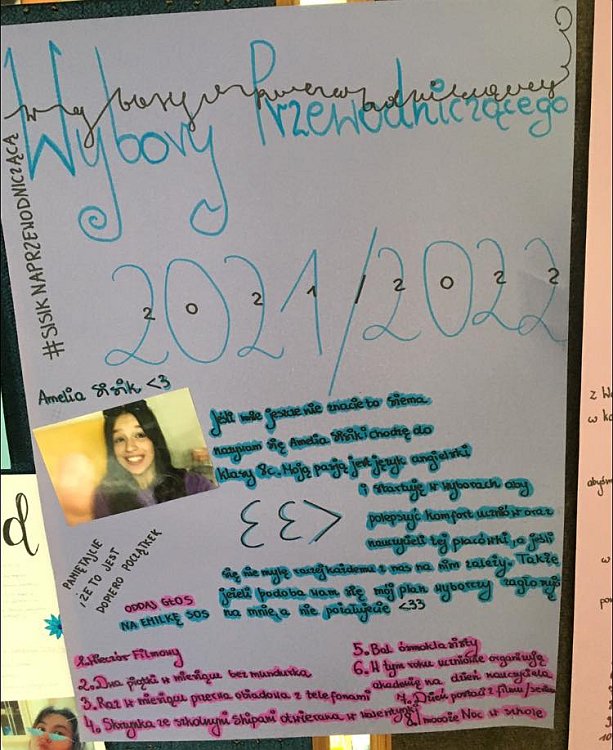 Wybory Przewodniczącego
wybory przewodniczącego
#SISIKNAPRZEWODNICZĄCĄ
2021/2022
2021/2022
Amelia Sisik <3
Jeśli mnie jeszcze nie znacie to siema
nazywam się Amelia Sisik i chodzę do
klasy 8c. Moją pasją jest język angielski
i startuję w wyborach aby
polepszyć komfort uczniów oraz
nauczycieli tej placówki, a jeśli
się nie mylę raczej każdemu z nas na nim zależy. Także
jeżeli podoba wam się mój plan wyborczy zagłosuj
na mnie, a nie pożałujecie <33
PAMIĘTAJCIE
IŻE TO JEST
DOPIERO POCZĄTEK
ODDAJ GŁOS
NA EMILKĘ SOS
1. Wieczór Filmowy
2. Dwa piątki w miesiącu bez mundurka
3. Raz w miesiącu przerwa obiadowa z telefonami
4. Skrzynka ze szkolnymi shipami otwierana w walentynki
5. Bal ósmoklasisty
6. W tym roku uczniowie organizują
akademię na dzień nauczyciela
7. Dzień postaci z filmu/serialu
8. I moooże Noc w szkole